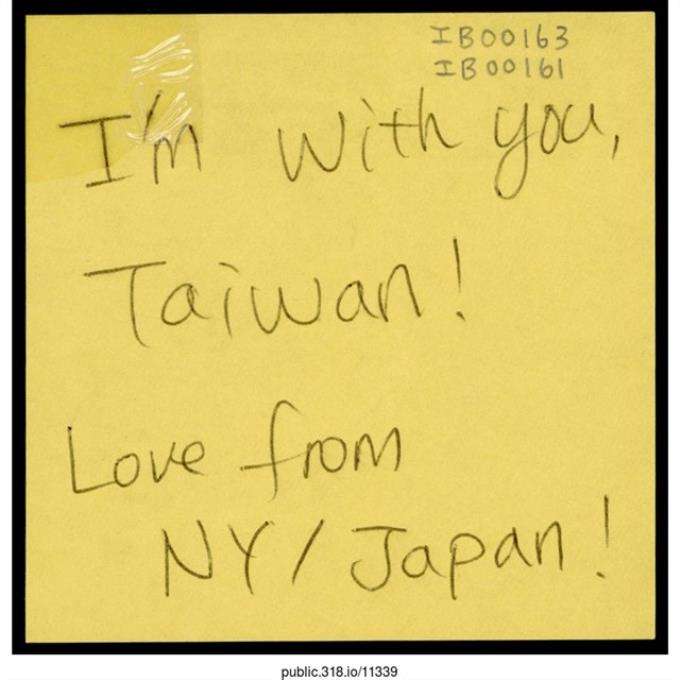 IB00163
IB00161
I'm with you,
Taiwan!
Love from
NY/Japan!
public.318.io/11339